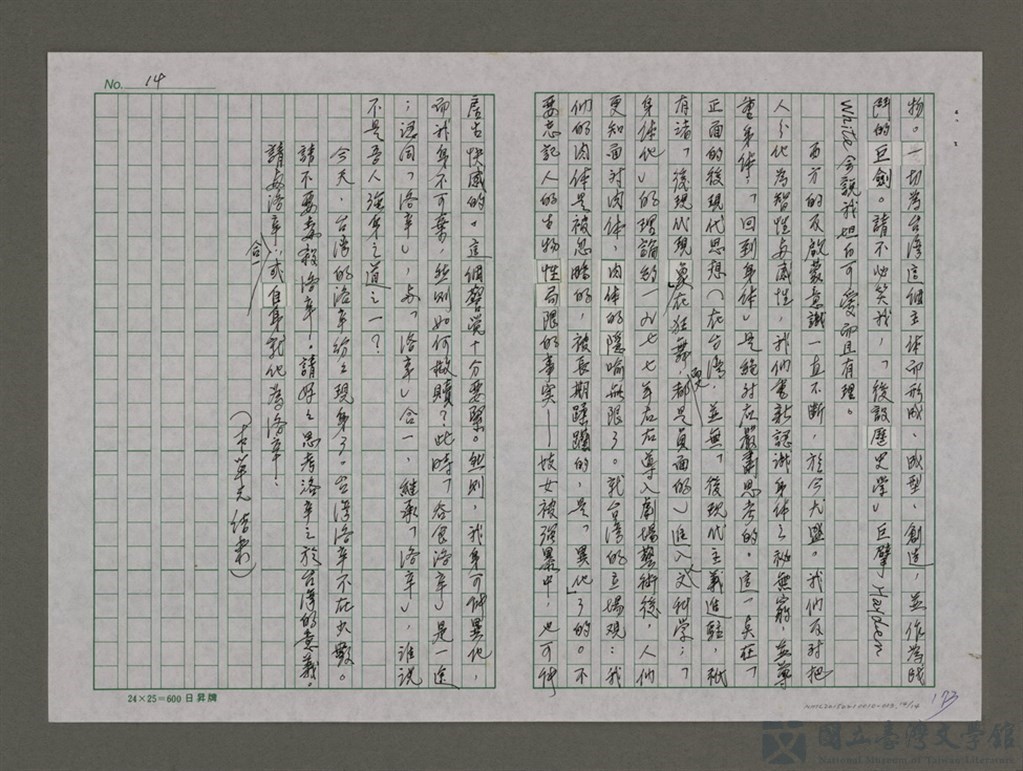 No. 14
物。一切為台灣這個主体而形成、成型、創造,並作為戰
鬥的巨劍。請不必笑我,「後設歷史學」巨擘,Hayden
White會說我坦白可愛而且有理。
西方的反啟蒙意識一直不斷,於今尤盛。我們反對把
人分化為智性与感性,我們重新認識身体了秘無窮,並尊
重身体;「回到身体」是絕對在嚴肅思考的。這一矣在「
正面的後現代思想(在台灣,並無「後現代主義進駐,祇
有諸「後現代現象在狂舞,都是負面的)進入文科學;「
身体化」的理論約一九七七年左右導入劇場藝術後,人們
更知面对肉体,肉体的隱喻無限了。就台灣的立場观:我
們的肉体是被忽略的,被長期蹂躪的,是「異化」了的。不
要忘記人的生物性局限的事实——妓女被強暴中,也可能
居古快感的。這個警覺十分要緊。然則,我身可能異化,
而我身不可棄,然則如何救贖?此時「吞食洛辛」是一途
;認同「洛辛」,与「洛辛」合一,繼承「洛辛」,誰説
不是吾人強身之道之一?
今天,台灣的洛辛紛紛現身了。台灣洛辛不在少數。
請不要毒殺洛辛!請好好思考洛辛之於台灣的意義。
請与洛辛合一;或自身就化為洛辛!
(本單元結束)
24×25=600 日昇牌
173
國立臺灣文學館
National Museum of Taiwan Literature